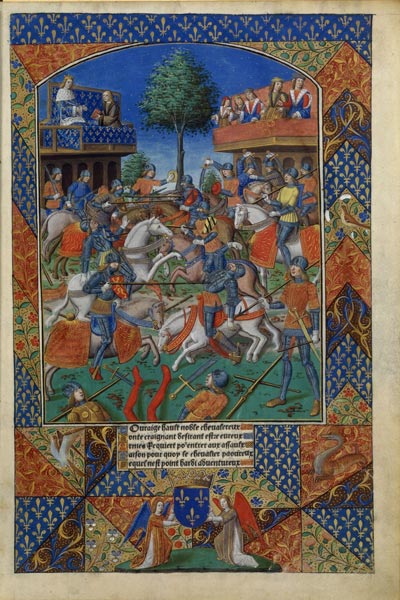 Ouraige hault noble cheualereux
onte craignant desirant estre eureux
mes Requiert po'entrer aux assaulx
aison pour quoy le cheualier paoureux
equel nest point hardi aduentureux